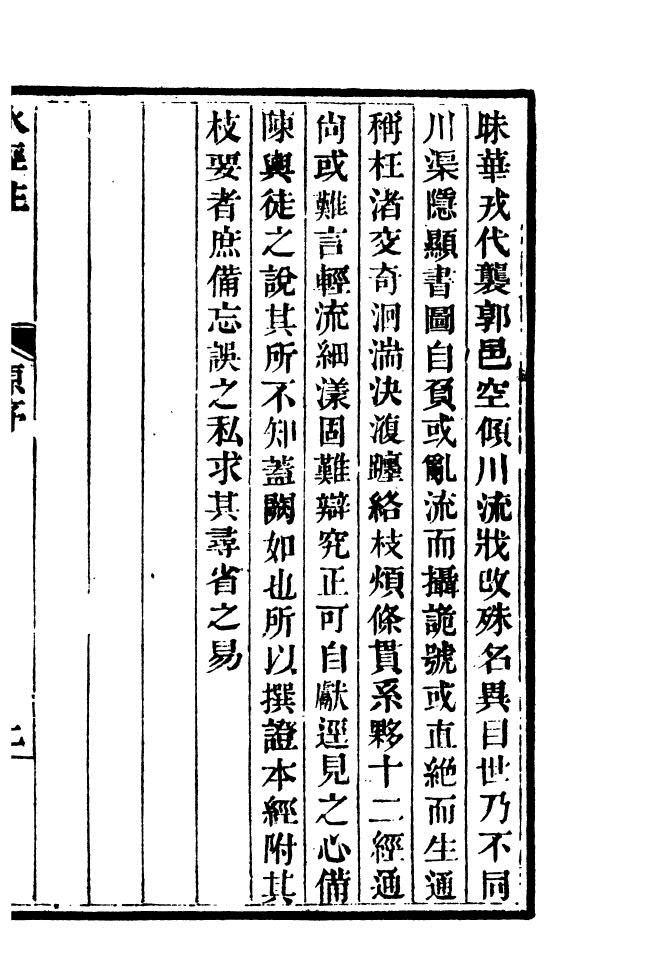 昧華戎代襲郭邑空傾川流戕改殊名異目世乃不同
川渠隱顯書圖自負或亂流而攝詭號或直絶而生通
稱枉渚交奇洄湍決澓躔絡枝煩條貫系夥十二經通
尚或難言輕流細漾固難辯究正可自獻逕見之心備
陳輿徒之說其所不知葢闕如也所以撰證本經附其
枝要者庶備忘誤之私求其尋省之易
水經注
原序